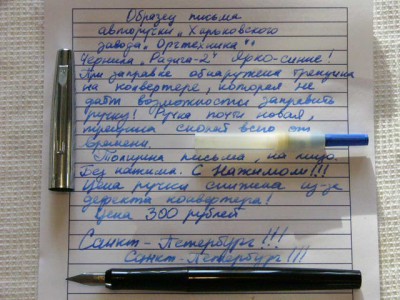 Образец письма
авторучки „Харьковского
завода „Оргтехника"."
Чернила „Радуга-2" Ярко-синие!
При заправке обнаружена трещина
на конвертере, которая не
даёт возможности заправить
ручку! Ручка почти новая,
трещина скорей всего от
времени.
Толщина письма, на лицо.
Без нажима. С Нажимом!!!
Цена ручки снижена из-за
дефекта конвертора!
Цена 300 рублей
Санкт-Петербург!!!
Санкт-Петербург!!!